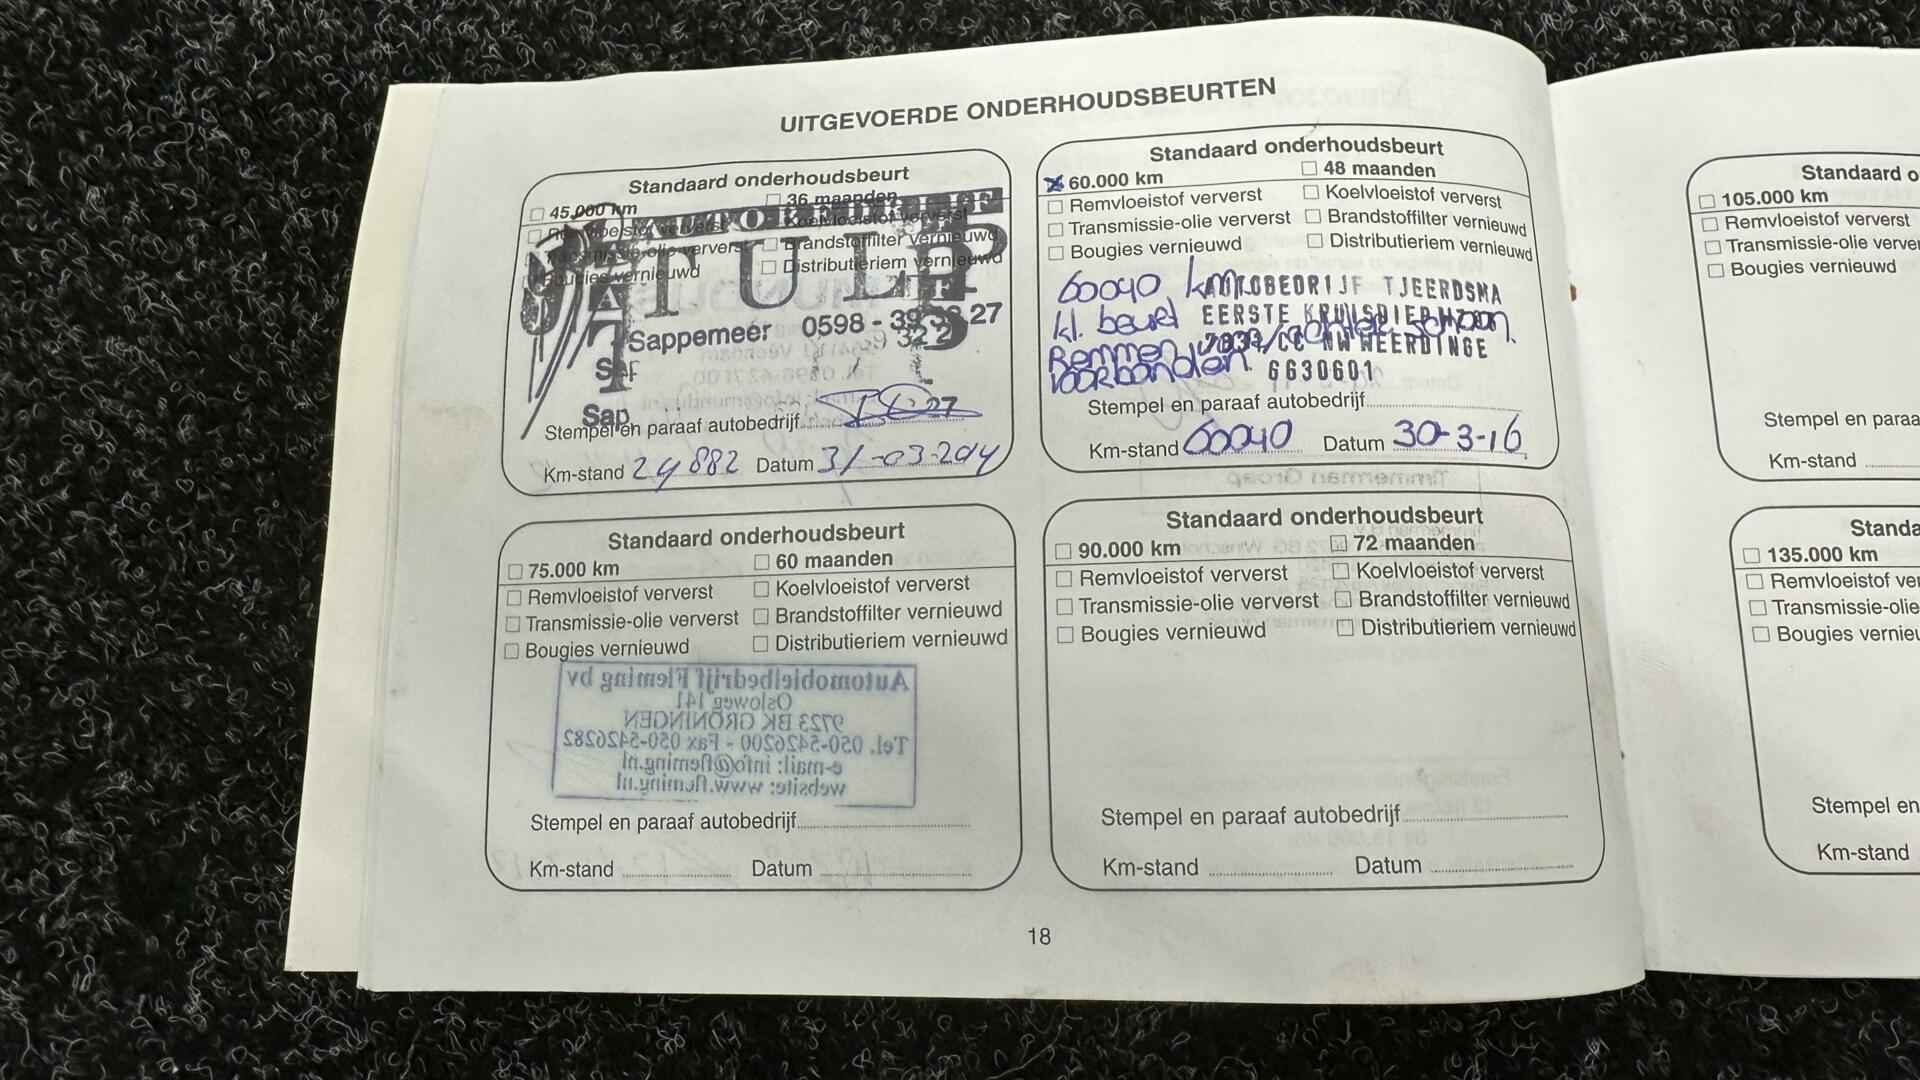 UITGEVOERDE ONDERHOUDSBEURTEN
Standaard onderhoudsbeurt
45.000 km
36 maanden
Remvloeistof ververst
Koelvloeistof ververst
Transmissie-olie ververst
Brandstoffilter vernieuwd
Bougies vernieuwd
Distributieriem vernieuwd
TULP
Sappemeer 0598 - 39 27
Sap
Stempel en paraaf autobedrijf
Km-stand 24882 Datum 31-03-2014
Standaard onderhoudsbeurt
60.000 km
48 maanden
Remvloeistof ververst
Koelvloeistof ververst
Transmissie-olie ververst
Brandstoffilter vernieuwd
Bougies vernieuwd
Distributieriem vernieuwd
60040 km
AUTOBEDRIJF TJEERDSMA
kl. beurt
EERSTE KRUISDIEP
Remmen voor/achter schoon.
CC NW WEERDINGE
voorbanden.
6630601
Stempel en paraaf autobedrijf
Km-stand 60040 Datum 30-3-16
Standaard onderhoudsbeurt
75.000 km
60 maanden
Remvloeistof ververst
Koelvloeistof ververst
Transmissie-olie ververst
Brandstoffilter vernieuwd
Bougies vernieuwd
Distributieriem vernieuwd
Automobielbedrijf Fleming bv
Osloweg 141
9723 BK GRONINGEN
Tel. 050-5426200 - Fax 050-5426282
e-mail: info@fleming.nl
website: www.fleming.nl
Stempel en paraaf autobedrijf
Km-stand Datum
Standaard onderhoudsbeurt
90.000 km
72 maanden
Remvloeistof ververst
Koelvloeistof ververst
Transmissie-olie ververst
Brandstoffilter vernieuwd
Bougies vernieuwd
Distributieriem vernieuwd
Stempel en paraaf autobedrijf
Km-stand Datum
18
Standaard o
105.000 km
Remvloeistof ververst
Transmissie-olie verver
Bougies vernieuwd
Stempel en paraa
Km-stand
Standa
135.000 km
Remvloeistof ver
Transmissie-olie
Bougies vernieu
Stempel en
Km-stand